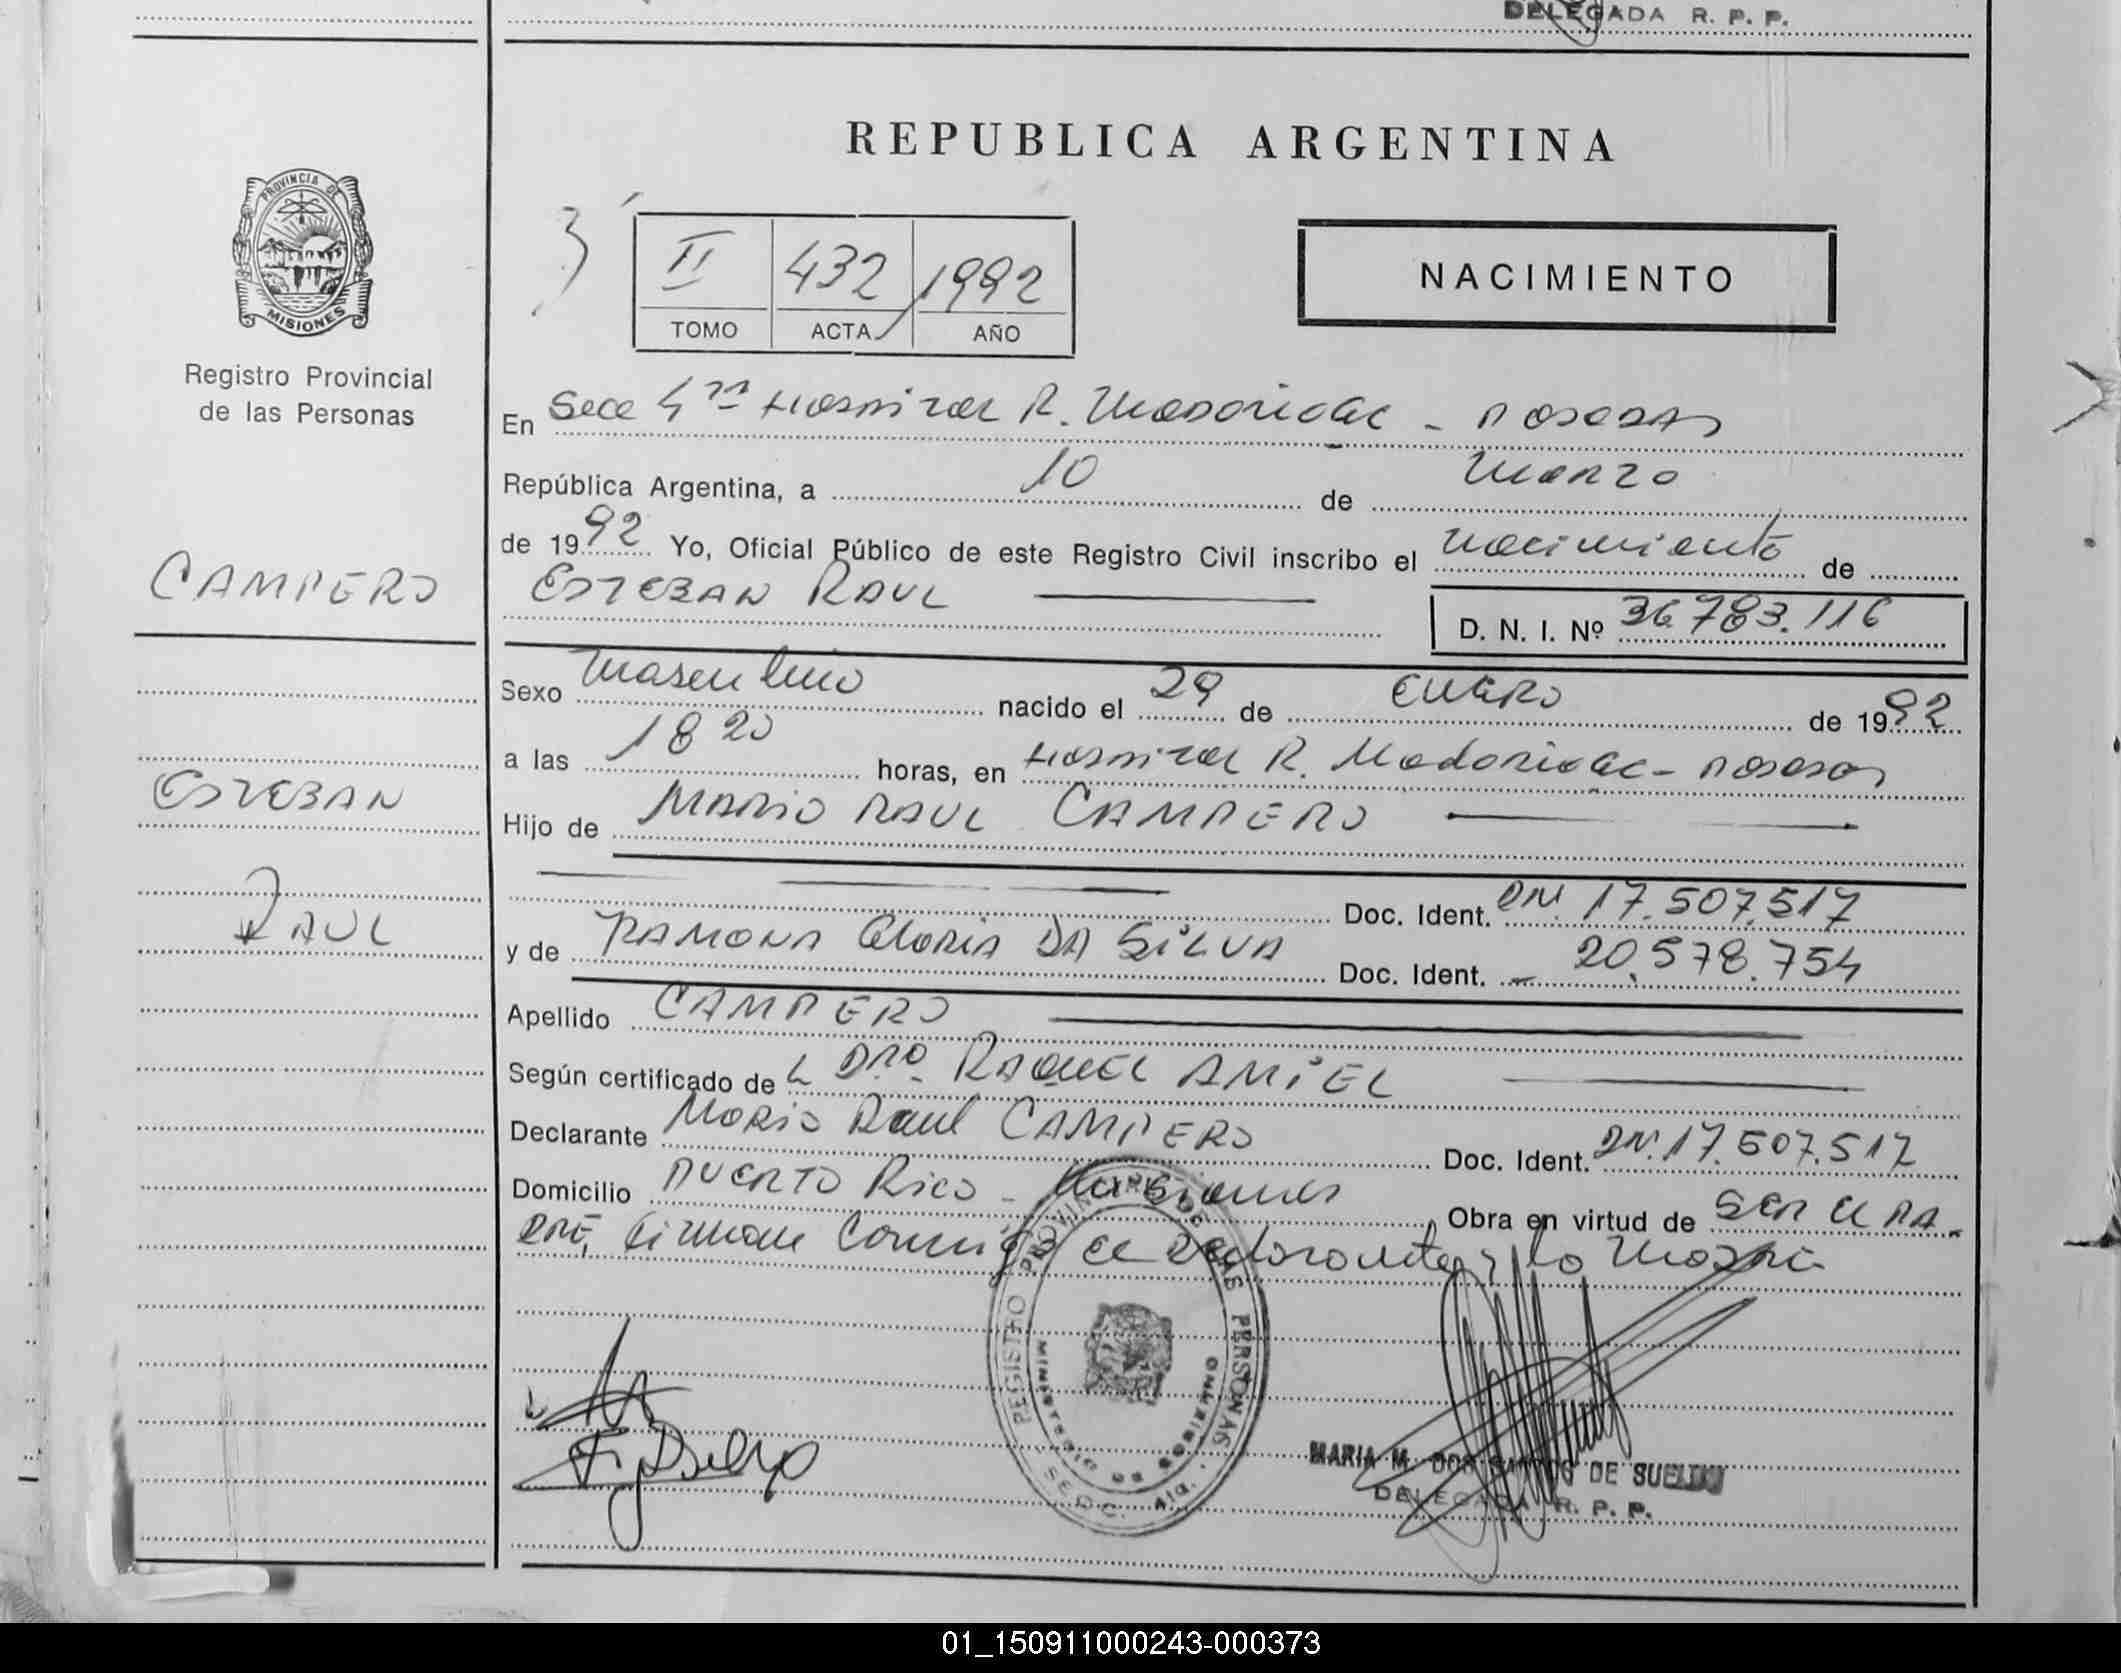 DELEGADA R. P. P.
REPUBLICA ARGENTINA
PROVINCIA DE
MISIONES
Registro Provincial
de las Personas
3
II 432 1992
TOMO ACTA AÑO
NACIMIENTO
En Secc 4ta Hospital R. Madariaga - Posadas
República Argentina, a 10 de Marzo
de 1992 Yo, Oficial Público de este Registro Civil inscribo el nacimiento de
CAMPERO
ESTEBAN RAUL
D. N. I. Nº 36.783.116
Sexo Masculino nacido el 29 de ENERO de 1992
a las 18 20 horas, en Hospital R. Madariaga - Posadas
ESTEBAN
Hijo de MARIO RAUL CAMPERO
Doc. Ident. DNI 17.507.517
RAUL
y de RAMONA GLORIA DA SILVA Doc. Ident. 20.578.754
Apellido CAMPERO
Según certificado de L Dra. RAQUEL AMiEL
Declarante MARIO Raul CAMPERO Doc. Ident. DNI. 17.507.517
Domicilio PUERTO Rico - Misiones, Obra en virtud de SER EL PA-
DRE, firman conmigo el declarante y la madre
REGISTRO PROVINCIAL DE LAS PERSONAS
MINISTERIO DE GOBIERNO
SECC. 4ta.
MARIA M. DOS SANTOS DE SUELDO
DELEGADA R. P. P.
01_150911000243-000373